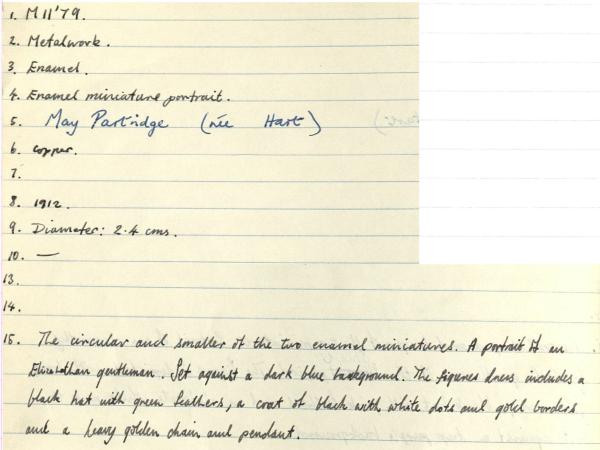 1. M11'79.
2. Metalwork.
3. Enamel.
4. Enamel miniature portrait.
5. May Partridge (née Hart)
6. copper.
7.
8. 1912.
9. Diameter: 2.4 cms.
10. —
13.
14.
15. The circular and smaller of the two enamel miniatures. A portrait of an
Elizabethan gentleman. Set against a dark blue background. The figures dress includes a
black hat with green feathers, a coat of black with white dots and gold borders
and a heavy golden chain and pendant.